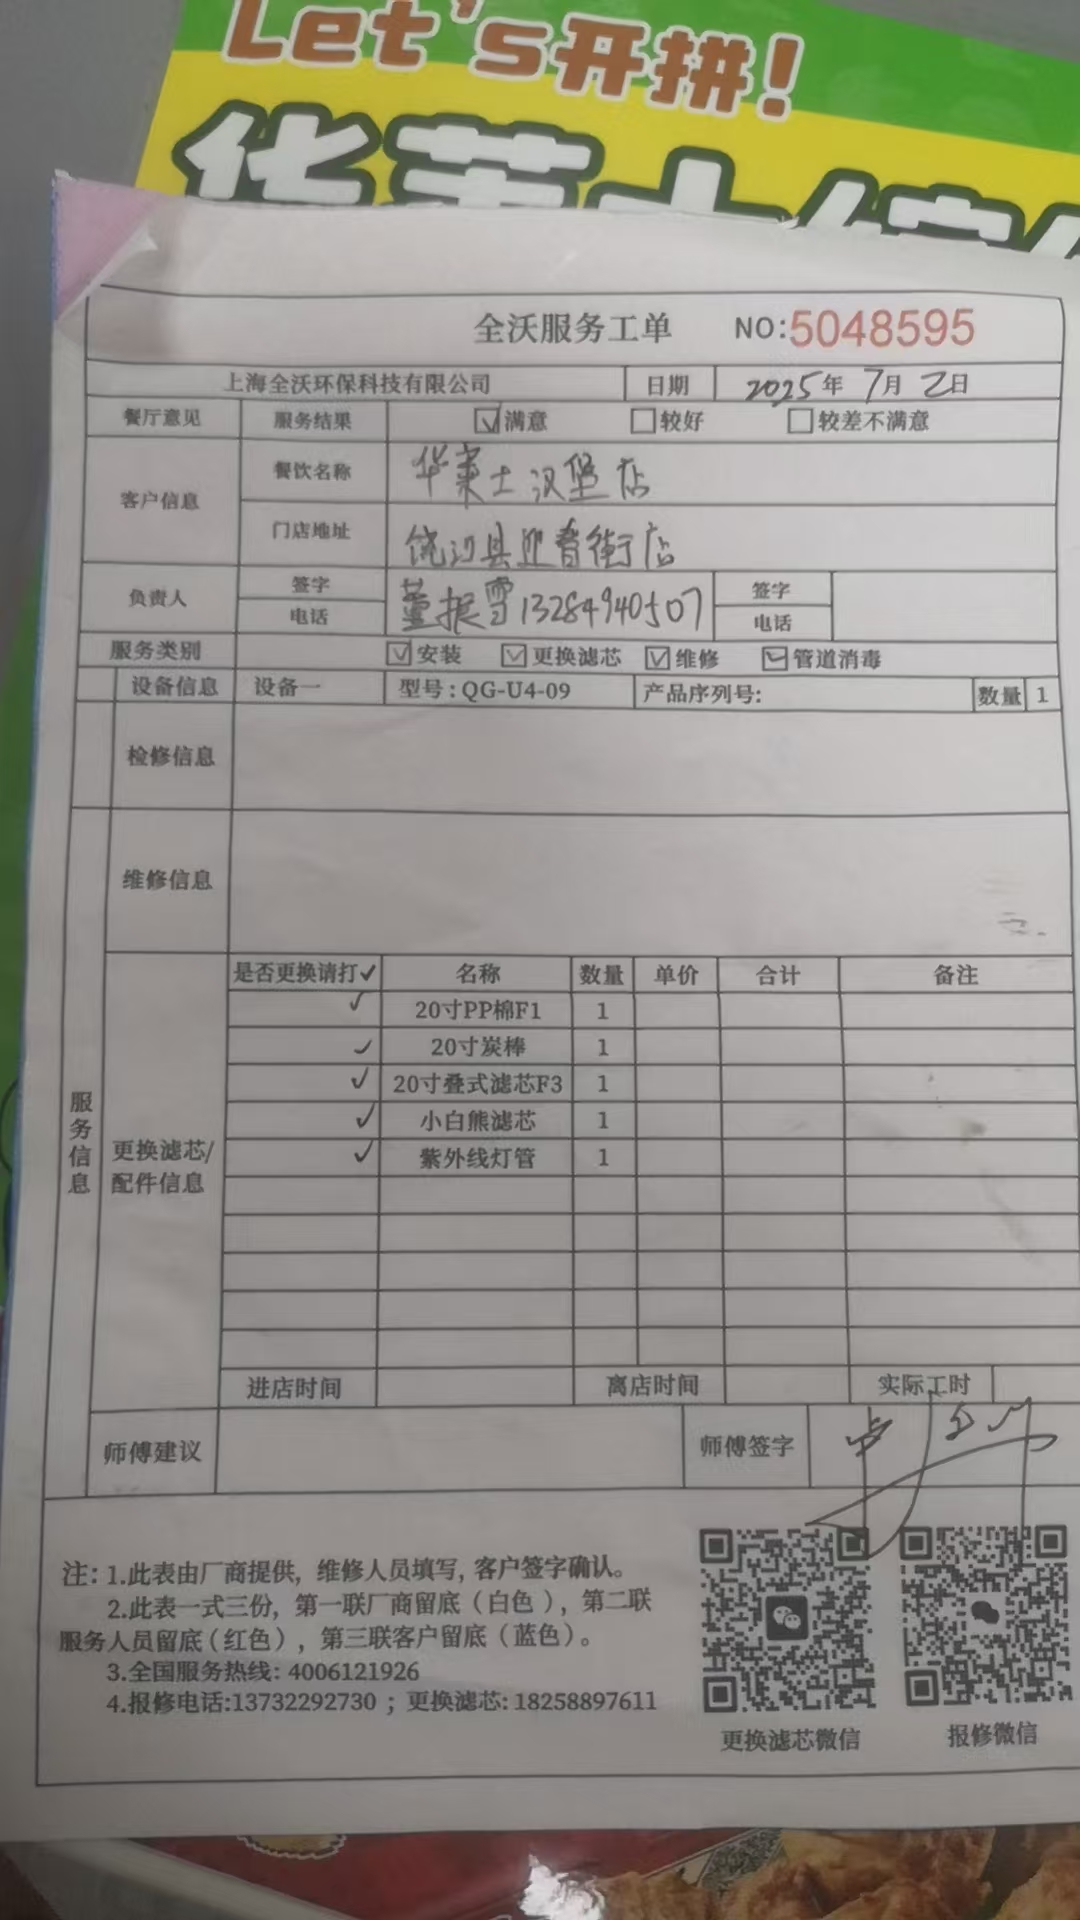 Let's开拼!
全沃服务工单 NO:5048595
上海全沃环保科技有限公司 日期 2025年 7月 2日
餐厅意见 服务结果 ☑满意 ☐较好 ☐较差不满意
客户信息 餐饮名称 华莱士汉堡店
门店地址 饶河县迎春街店
负责人 签字 董振雪 签字
电话 13284940507 电话
服务类别 ☑安装 ☑更换滤芯 ☑维修 ☑管道消毒
设备信息 设备一 型号:QG-U4-09 产品序列号: 数量 1
检修信息
维修信息
服务信息
更换滤芯/配件信息
是否更换请打✓ 名称 数量 单价 合计 备注
✓ 20寸PP棉F1 1
✓ 20寸炭棒 1
✓ 20寸叠式滤芯F3 1
✓ 小白熊滤芯 1
✓ 紫外线灯管 1
进店时间 离店时间 实际工时
师傅建议 师傅签字
注: 1.此表由厂商提供, 维修人员填写, 客户签字确认。
2.此表一式三份, 第一联厂商留底（白色）, 第二联
服务人员留底（红色）, 第三联客户留底（蓝色）。
3.全国服务热线: 4006121926
4.报修电话:13732292730 ; 更换滤芯: 18258897611
更换滤芯微信 报修微信